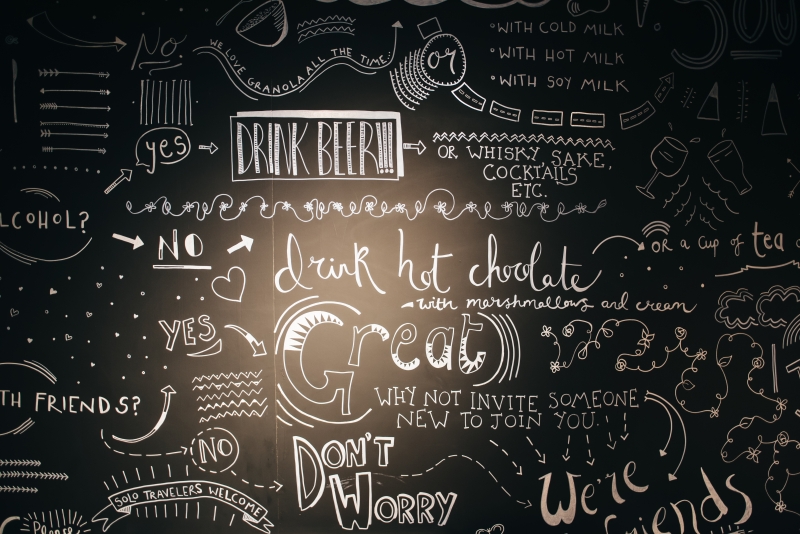 No.
WE LOVE GRANOLA ALL THE TIME...
or
WITH COLD MILK
WITH HOT MILK
WITH SOY MILK
yes
DRINK BEER!!!
OR WHISKY, SAKE,
COCKTAILS
ETC.
LCOHOL?
NO
drink hot choclate
with marshmallows and cream
OR a cup of tea
YES
Great
WHY NOT INVITE SOMEONE
NEW TO JOIN YOU.
TH FRIENDS?
NO
DON'T
WORRY
SOLO TRAVELERS WELCOME
Please
We're
friends